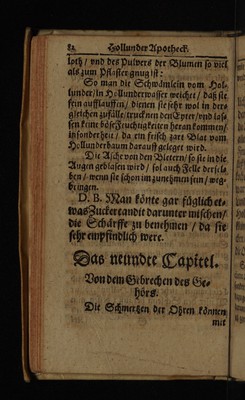 82 Hollunder Apotheck.
loth/ vnd des Pulvers der Blumen so viel
als zum Pflaster gnug ist:
So man die Schwämlein vom Hol-
lunder/ in Hollunderwasser weichet/ daß sie
fein aufflauffen/ dienen sie sehr wol in der-
gleichen zufälle/ trucknen den Eyter/ vnd las-
sen keine böse Feuchtigkeiten heran kommen/
insonderheit/ da ein frisch zart Blat vom
Hollunderbaum darauff geleget wird.
Die Asche von den Bletern/ so sie in die
Augen geblasen wird/ sol auch Felle der selz
ben/ wenn sie schon im zunehmen sein/ weg-
bringen.
D. B. Man könte gar füglich et-
was Zuckercandit darunter mischen/
die Schärffe zu benehmen/ da sie
sehr empfindlich were.
Das neundte Capitel.
Von dem Gebrechen des Ge-
hörs.
Die Schmertzen der Ohren können
met